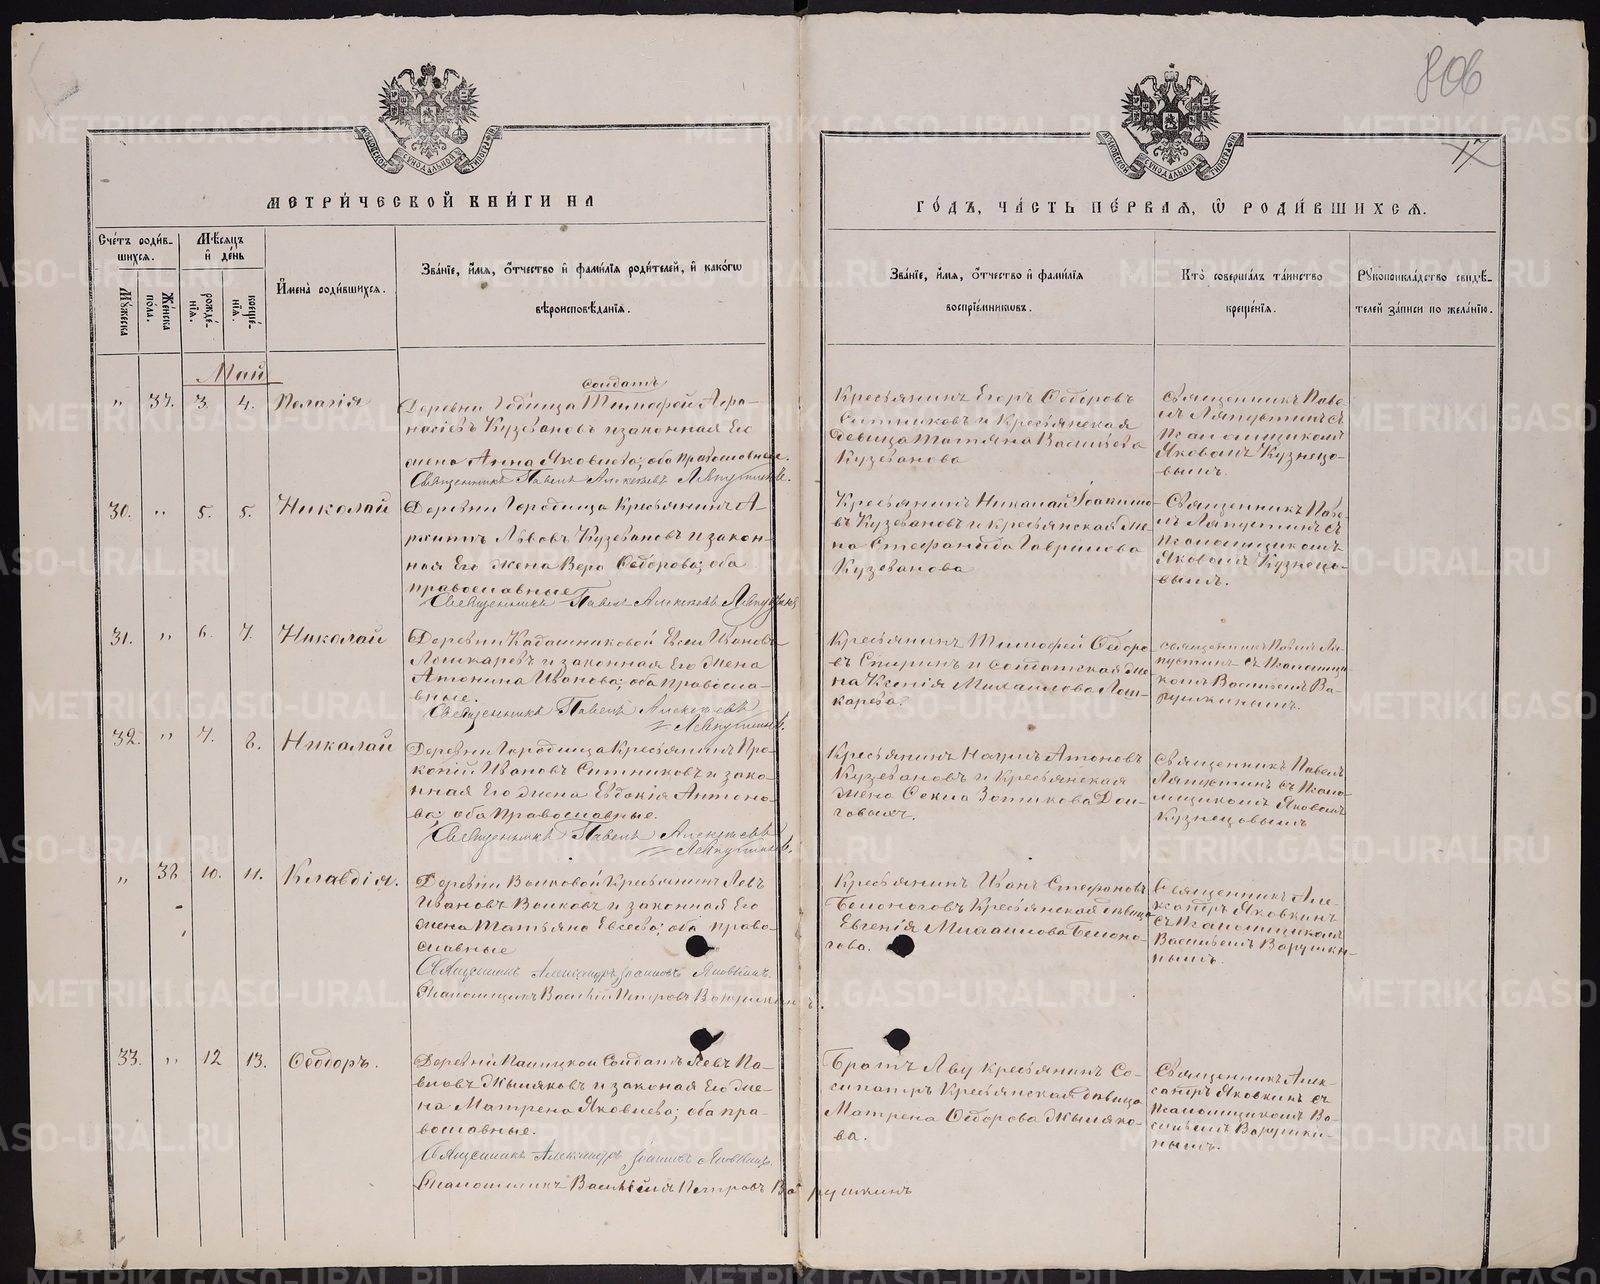 806
17
МОСКОВСКОЙ СѴНОДАЛЬНОЙ ТИПОГРАФІИ
МОСКОВСКОЙ СѴНОДАЛЬНОЙ ТИПОГРАФІИ
МЕТРИ́ЧЕСКОЙ КНИ́ГИ НА
ГО́ДЪ, ЧА́СТЬ ПЕ́РВАЯ, Ѡ РОДИ́ВШИХСЯ.
Сче́тъ роди́в-
шихся.
Мѣ́сяцъ
и де́нь
Му́жеска
Же́нска
по́ла.
рожде́-
нїя.
креще́-
нїя.
И҆мена̀ роди́вшихся.
Зва́нїе, и҆́мя, о҆́тчество и҆ фами́лїя роди́телей, и҆ како́гѡ
вѣроисповѣ́данїя.
Зва́нїе, и҆́мя, о҆́тчество и҆ фами́лїя
воспрїе́мниковъ.
Кто̀ соверша́лъ та́инство
креще́нїя.
Рꙋкоприкла́дство свидѣ́-
телей за́писи по жела́нїю.
Май
„ 31. 3. 4. Пелагія
солдатъ
Деревни Городища Тимофей Афа-
насіевъ Кузевановъ и законная Его
жена Анна Яковлева; оба православные.
Священникъ Павелъ Алексѣевъ Ляпустинъ.
Крестьянинъ Егоръ Ѳедоровъ
Ситниковъ и Крестьянская
Девица Татьяна Васильева
Кузеванова
Священникъ Паве-
лъ Ляпустинъ съ
Псаломщикомъ
Яковомъ Кузнецо-
вымъ.
30. „ 5. 5. Николай
Деревни Городища Крестьянинъ А-
Львовъ Кузевановъ и закон-
ная Его жена Вера Ѳедорова; оба
православные
Священникъ Павелъ Алексѣевъ Ляпустинъ
Крестьянинъ Николай Іоакимо-
въ Кузевановъ и крестьянская же-
на Стефанида Гаврилова
Кузеванова
Священникъ Паве-
лъ Ляпустинъ съ
Псаломщикомъ
Яковомъ Кузнецо-
вымъ.
31. „ 6. 7. Николай
Деревни Кадашниковой Евсей Ивановъ
Лошкаревъ и законная Его жена
Антонина Иванова; оба Правосла-
вные.
Священникъ Павелъ Алексѣевъ
Ляпустинъ.
Крестьянинъ Тимофей Ѳедоро-
въ Спиринъ и солдатская же-
на Ксенія Михаилова Лош-
карева.
священникъ Павелъ Ля-
пустинъ съ Псаломщи-
комъ Васильемъ Ва-
рушкинымъ.
32. „ 7. 8. Николай
Деревни Городища Крестьянинъ Про-
копій Ивановъ Ситниковъ и зако-
нная Его жена Евдокія Антоно-
ва; оба Православные.
Священникъ Павелъ Алексѣевъ
Ляпустинъ.
Крестьянинъ Наумъ Антоновъ
Кузевановъ и Крестьянская
жена Зотикова Дол-
говыхъ.
Священникъ Павелъ
Ляпустинъ съ Псало-
мщикомъ Яковомъ
Кузнецовымъ
„ 32 10. 11. Клавдія.
Деревни Волковой Крестьянинъ Левъ
Ивановъ Волковъ и законная Его
жена Татьяна Евсеева; оба право-
славные
Священникъ Александръ Іоанновъ Яковкинъ.
Псаломщикъ Василій Петровъ Варушкинъ.
Крестьянинъ Иванъ Стефановъ
Белоноговъ Крестьянская дѣвица
Евгенія Михаилова Белоно-
гова.
Священникъ Але-
ксандръ Яковкинъ
съ Псаломщикомъ
Васильемъ Варушки-
нымъ.
33. „ 12 13. Ѳеодоръ.
Деревни Солдатъ Левъ Па-
вловъ Жыляковъ и законая Его же-
на Матрена Яковлева; оба пра-
вославные.
Священникъ Александръ Іоанновъ Яковкинъ.
Псаломщикъ Василій Петровъ Варушкинъ
Братъ Льву крестьянинъ Со-
сипатръ Крестьянская дѣвица
Матрена Ѳедорова Жыляко-
ва.
Священникъ Алек-
сандръ Яковкинъ съ
Псаломщикомъ Ва-
сильемъ Варушки-
нымъ.